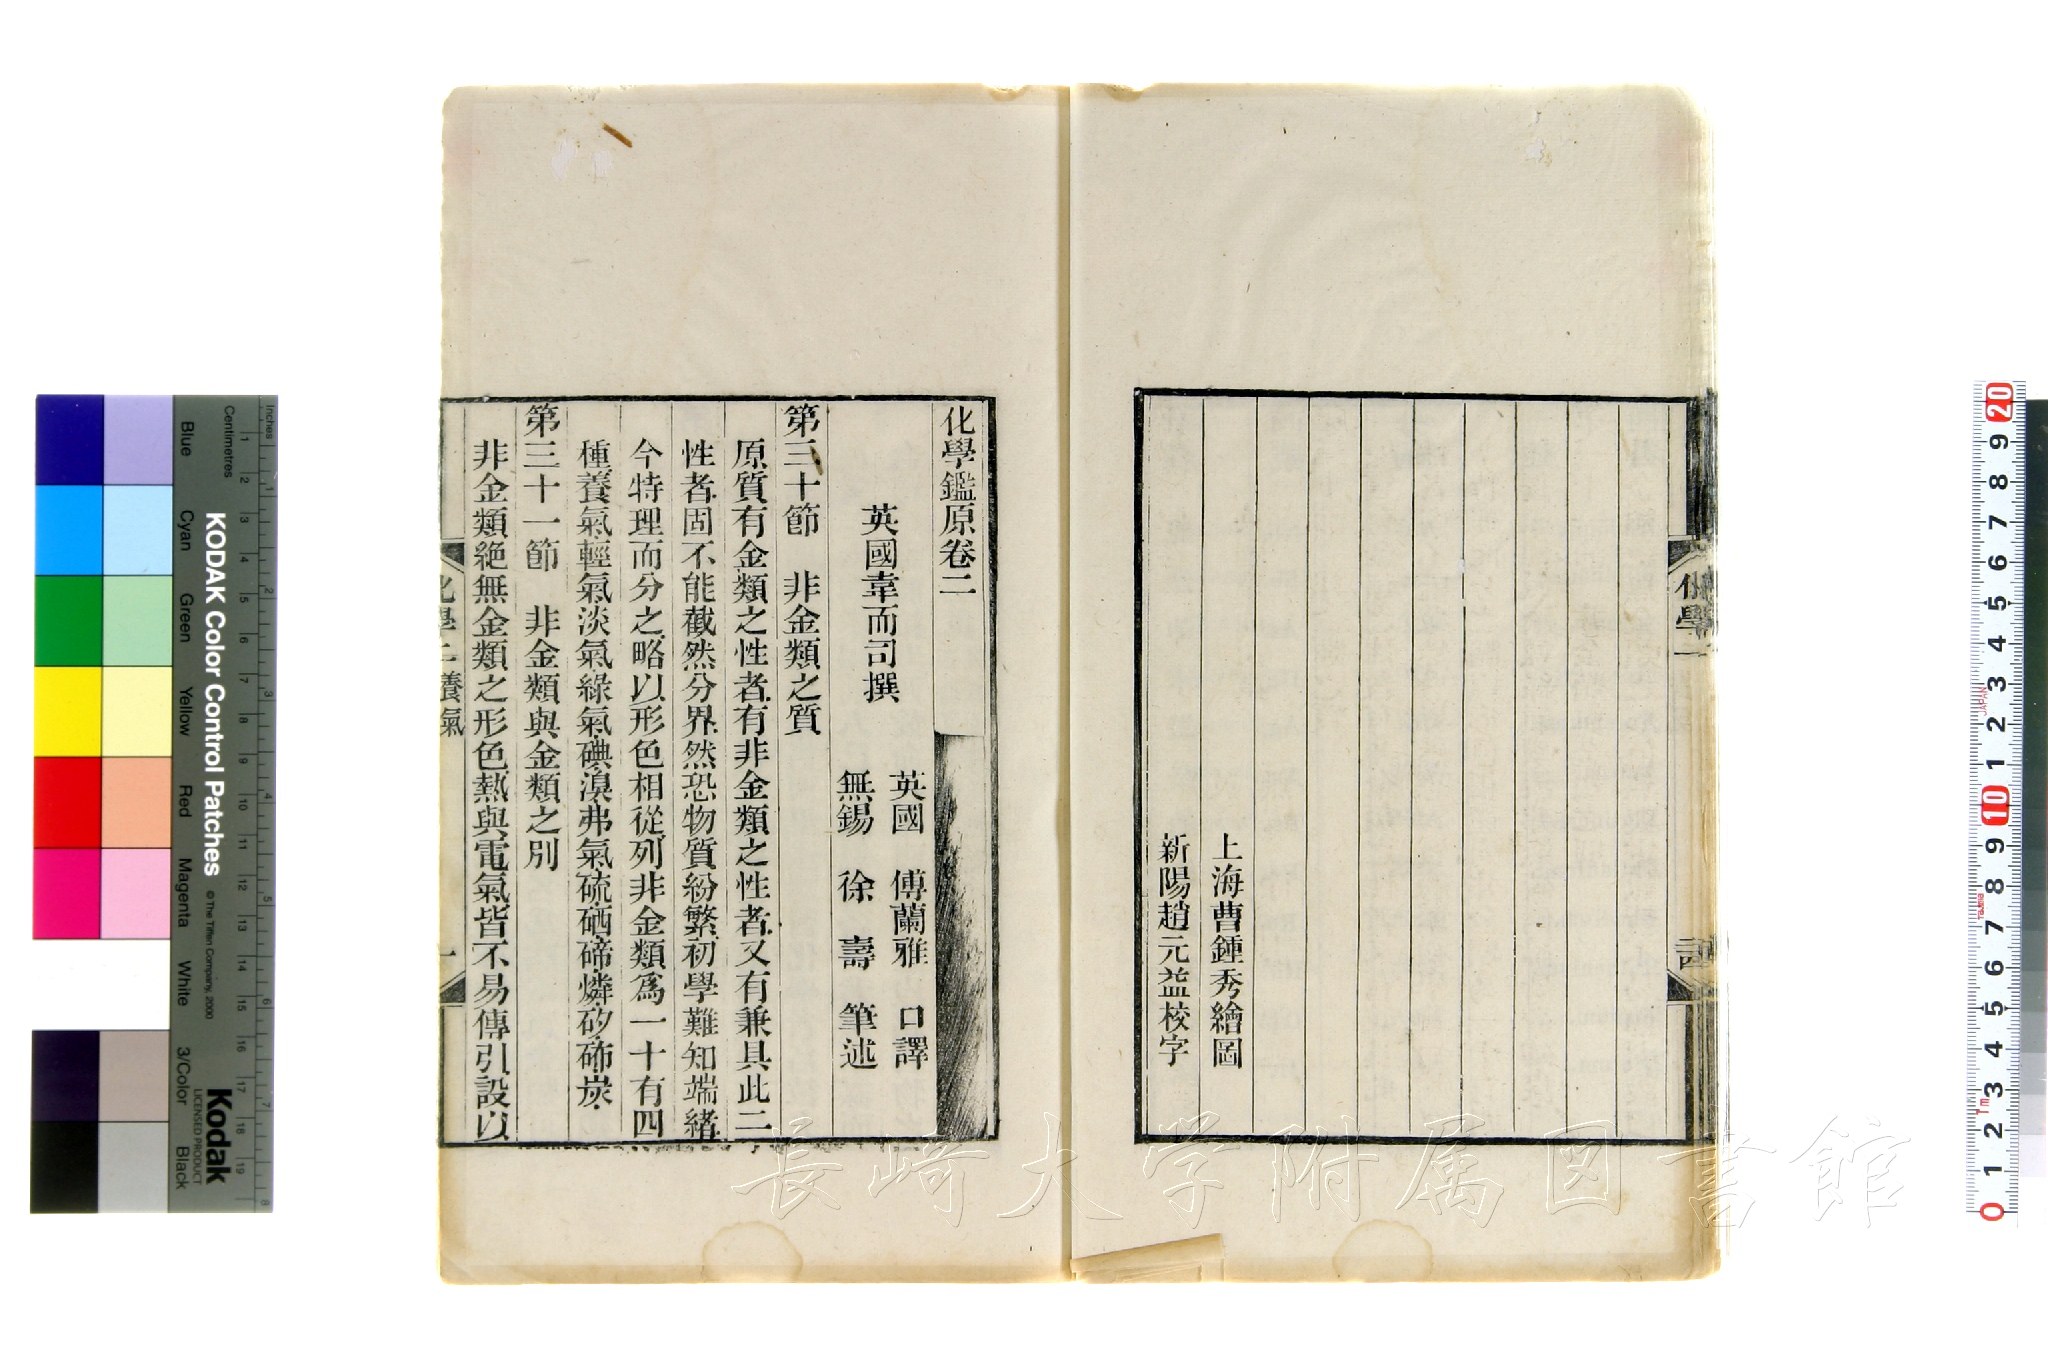 上海曹鍾秀繪圖
新陽趙元益校字
化學鑑原卷二
英國韋而司撰
英國 傅蘭雅 口譯
無錫 徐 壽 筆述
第三十節 非金類之質
原質有金類之性者有非金類之性者又有兼具此二
性者固不能截然分界然恐物質紛繁初學難知端緒
今特理而分之略以形色相從列非金類爲一十有四
種養氣輕氣淡氣綠氣碘溴弗氣硫硒碲燐矽𥑐炭
第三十一節 非金類與金類之別
非金類絕無金類之形色熱與電氣皆不易傳引設以
化學二 養氣
一
化學一
長崎大学附属図書館
KODAK Color Control Patches
© The Tiffen Company, 2000
Kodak
LICENSED PRODUCT
Inches
Centimetres
Blue
Cyan
Green
Yellow
Red
Magenta
White
3/Color
Black
1 2 3 4 5 6 7 8 9 10 11 12 13 14 15 16 17 18 19
1 2 3 4 5 6 7 8
0 1 2 3 4 5 6 7 8 9 10 1 2 3 4 5 6 7 8 9 20
JAPAN